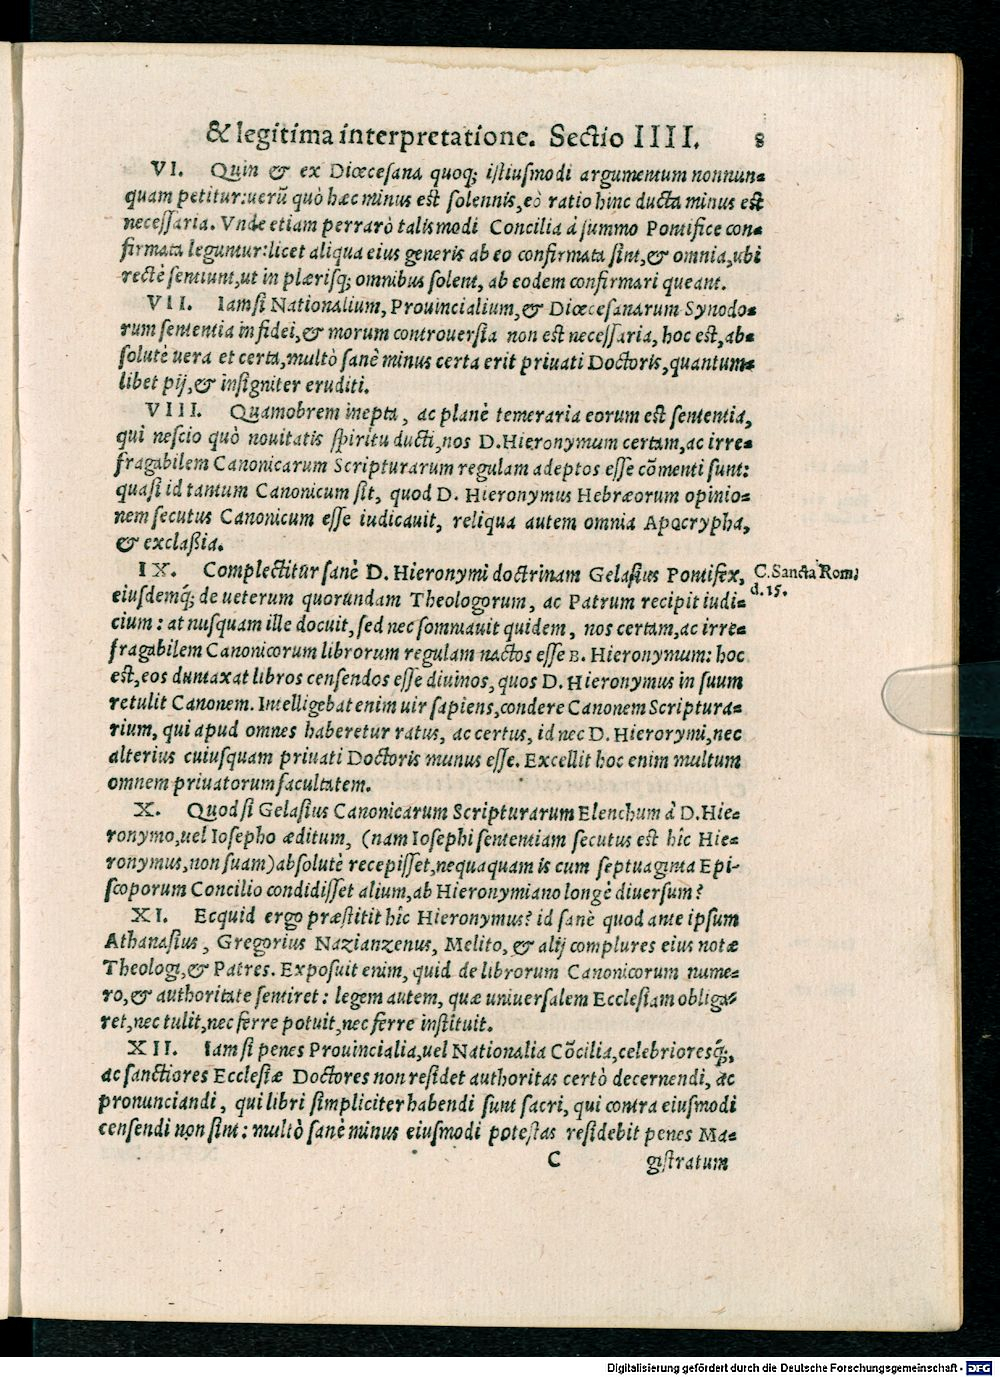 & legitima interpretatione. Sectio IIII. 8
VI. Quin & ex Diœcesana quoq; istiusmodi argumentum nonnun=
quam petitur: uerũ quò hæc minus est solennis, eò ratio hinc ducta minus est
necessaria. Vnde etiam perrarò talismodi Concilia à summo Pontifice con=
firmata leguntur: licet aliqua eius generis ab eo confirmata sint, & omnia, ubi
rectè sentiunt, ut in plærisq; omnibus solent, ab eodem confirmari queant.
VII. Iam si Nationalium, Prouincialium, & Diœcesanarum Synodo=
rum sententia in fidei, & morum controuersia non est necessaria, hoc est, ab=
solutè uera et certa, multò sanè minus certa erit priuati Doctoris, quantum=
libet pij, & insigniter eruditi.
VIII. Quamobrem inepta, ac planè temeraria eorum est sententia,
qui nescio quò nouitatis spiritu ducti, nos D. Hieronymum certam, ac irre=
fragabilem Canonicarum Scripturarum regulam adeptos esse cõmenti sunt:
quasi id tantum Canonicum sit, quod D. Hieronymus Hebræorum opinio=
nem secutus Canonicum esse iudicauit, reliqua autem omnia Apocrypha,
& exclaßia.
IX. Complectitur sanè D. Hieronymi doctrinam Gelasius Pontifex,
C. Sancta Rom.
d. 15.
eiusdemq́; de ueterum quorundam Theologorum, ac Patrum recipit iudi=
cium: at nusquam ille docuit, sed nec somniauit quidem, nos certam, ac irre=
fragabilem Canonicorum librorum regulam nactos esse B. Hieronymum: hoc
est, eos duntaxat libros censendos esse diuinos, quos D. Hieronymus in suum
retulit Canonem. Intelligebat enim uir sapiens, condere Canonem Scriptura=
rium, qui apud omnes haberetur ratus, ac certus, id nec D. Hierorymi, nec
alterius cuiusquam priuati Doctoris munus esse. Excellit hoc enim multum
omnem priuatorum facultatem.
X. Quod si Gelasius Canonicarum Scripturarum Elenchum à D. Hie=
ronymo, uel Iosepho æditum, (nam Iosephi sententiam secutus est hîc Hie=
ronymus, non suam) absolutè recepisset, nequaquam is cum septuaginta Epi-
scoporum Concilio condidisset alium, ab Hieronymiano longè diuersum?
XI. Ecquid ergo præstitit hîc Hieronymus? id sanè quod ante ipsum
Athanasius, Gregorius Nazianzenus, Melito, & alij complures eius notæ
Theologi, & Patres. Exposuit enim, quid de librorum Canonicorum nume=
ro, & authoritate sentiret: legem autem, quæ uniuersalem Ecclesiam obliga=
ret, nec tulit, nec ferre potuit, nec ferre instituit.
XII. Iam si penes Prouincialia, uel Nationalia Cõcilia, celebrioresq́;,
ac sanctiores Ecclesiæ Doctores non residet authoritas certò decernendi, ac
pronunciandi, qui libri simpliciter habendi sunt sacri, qui contra eiusmodi
censendi non sint: multò sanè minus eiusmodi potestas residebit penes Ma=
C gistratum
Digitalisierung gefördert durch die Deutsche Forschungsgemeinschaft - DFG